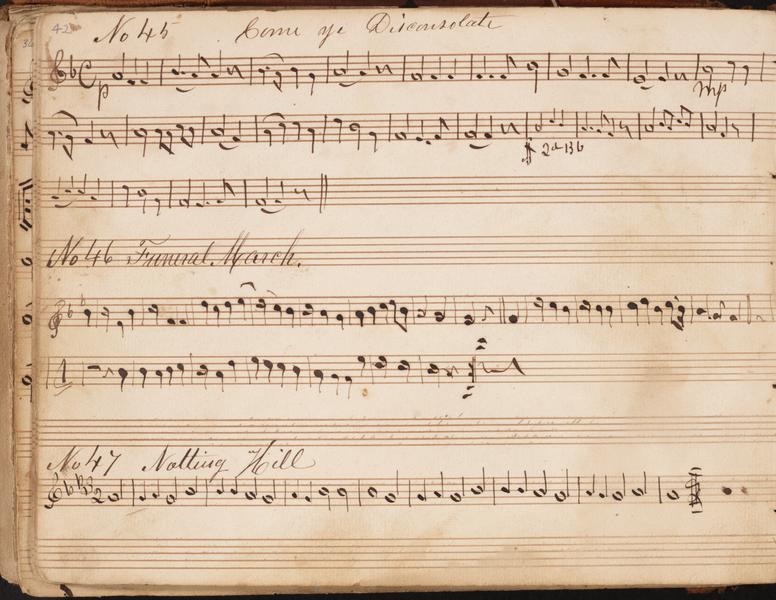 42
No 45 Come ye Disconsolate
p
mp
2d
No 46 Funeral March.
1
No 47 Notting Hill
2